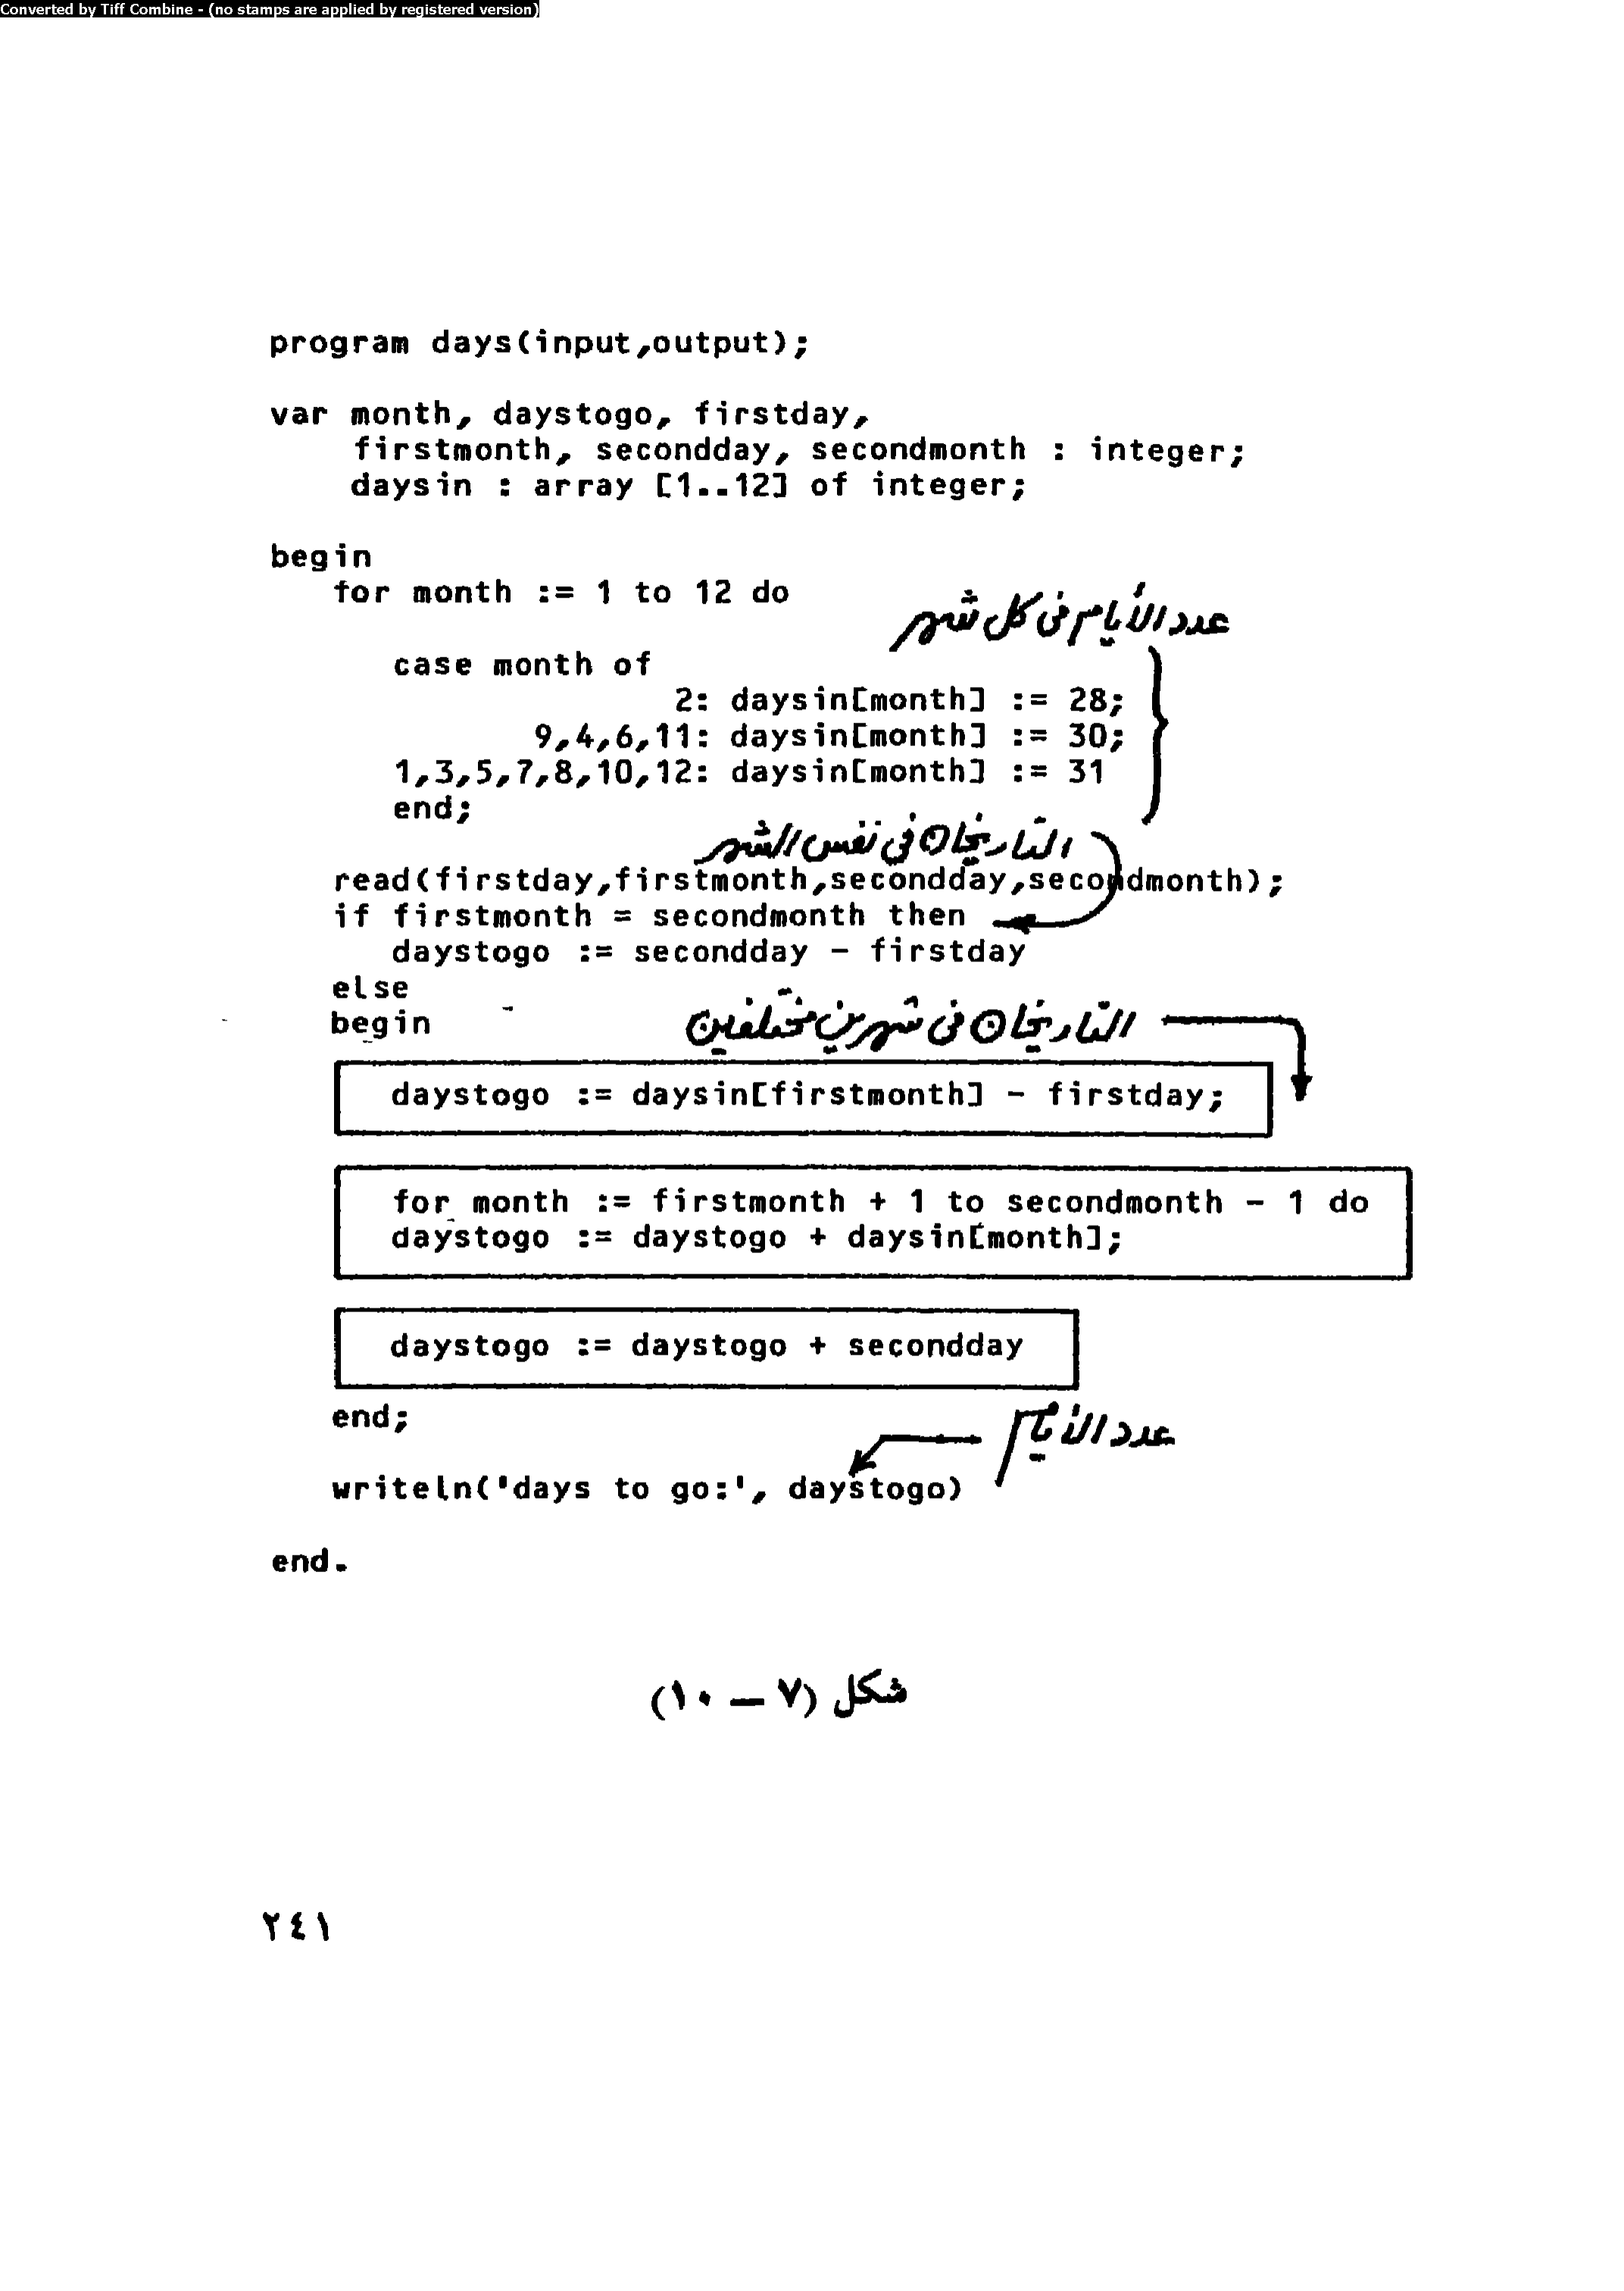 Converted by Tiff Combine - (no stamps are applied by registered version)
program days(input,output);
var month, daystogo, firstday,
firstmonth, secondday, secondmonth : integer;
daysin : array [1..12] of integer;
begin
for month := 1 to 12 do
عدد الأيام في كل شهر
case month of
2: daysin[month] := 28;
9,4,6,11: daysin[month] := 30;
1,3,5,7,8,10,12: daysin[month] := 31
end;
التاريخان في نفس الشهر
read(firstday,firstmonth,secondday,secondmonth);
if firstmonth = secondmonth then
daystogo := secondday - firstday
else
begin
التاريخان في شهرين مختلفين
daystogo := daysin[firstmonth] - firstday;
for month := firstmonth + 1 to secondmonth - 1 do
daystogo := daystogo + daysin[month];
daystogo := daystogo + secondday
end;
عدد الأيام
writeln('days to go:', daystogo)
end.
شكل (٧ – ١٠)
٢٤١